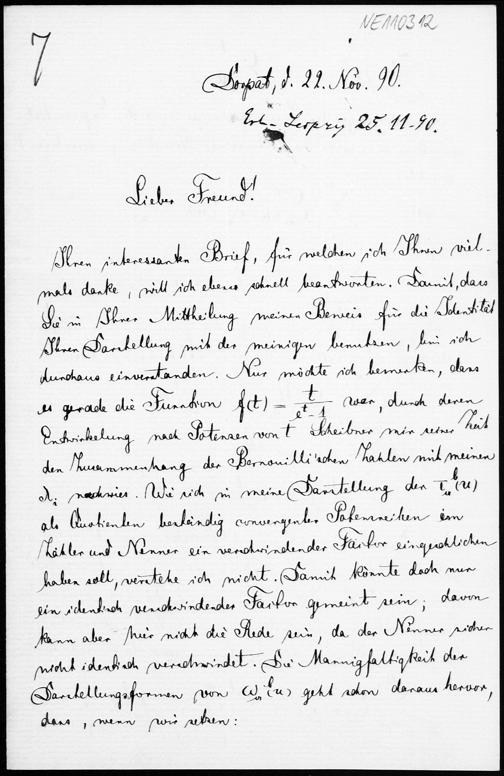 7
NE110312
Dorpat, d. 22. Nov. 90.
Erh. Leipzig 25.11.90.
Lieber Freund!
Ihren interessanten Brief, für welchen ich Ihnen viel-
mals danke, will ich ebenso schnell beantworten. Damit, dass
Sie in Ihrer Mittheilung meinen Beweis für die Identität
Ihrer Darstellung mit der meinigen benutzen, bin ich
durchaus einverstanden. Nur möchte ich bemerken, dass
es gerade die Function f(t) = t/(e^t - 1) war, durch deren
Entwickelung nach Potenzen von t Scheibner mir seiner Zeit
den Zusammenhang der Bernouilli'schen Zahlen mit meinen
nachwies. Wie sich in meine Darstellung der (u)
als Quotienten beständig convergenter Potenzreihen im
Zähler und Nenner ein verschwindender Factor eingeschlichen
haben soll, verstehe ich nicht. Damit könnte doch nur
ein identisch verschwindender Factor gemeint sein; davon
kann aber hier nicht die Rede sein, da der Nenner sicher
nicht identisch verschwindet. Die Mannigfaltigkeit der
Darstellungsformen von (u) geht schon daraus hervor,
dass, wenn wir setzen: